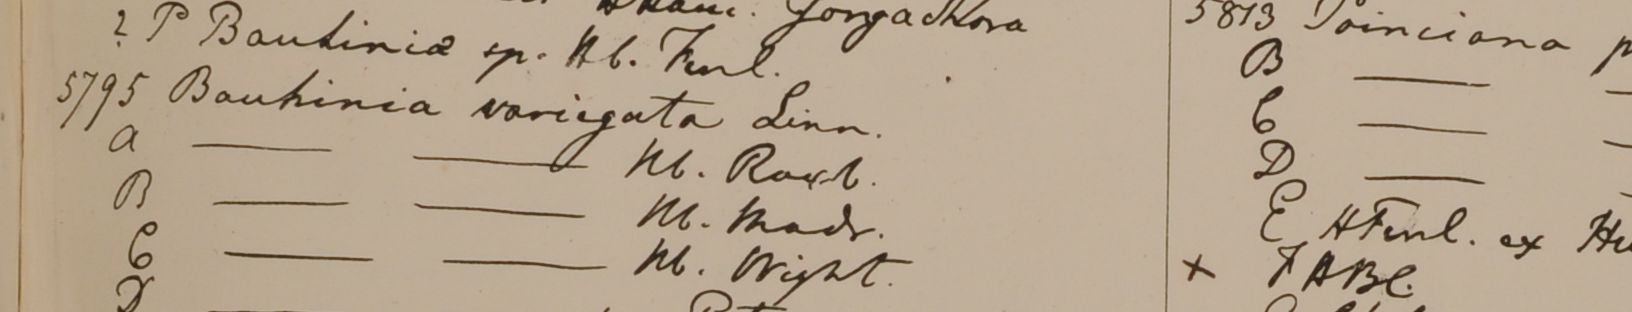 Gongachora
? P Bauhiniæ sp. Hb. Finl.
5795 Bauhinia variegata Linn.
a — — Hb. Roxb.
B — — Hb. Madr.
C — — Hb. Wight.
D
5813 Poinciana p
B —
C —
D —
E HFinl. ex
x F HBC.